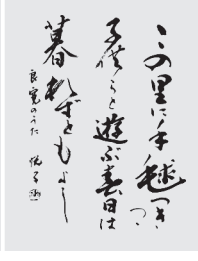 この里に手毬つき
つゝ
子供らと遊ぶ春日は
暮れずともよし
良寛のうた